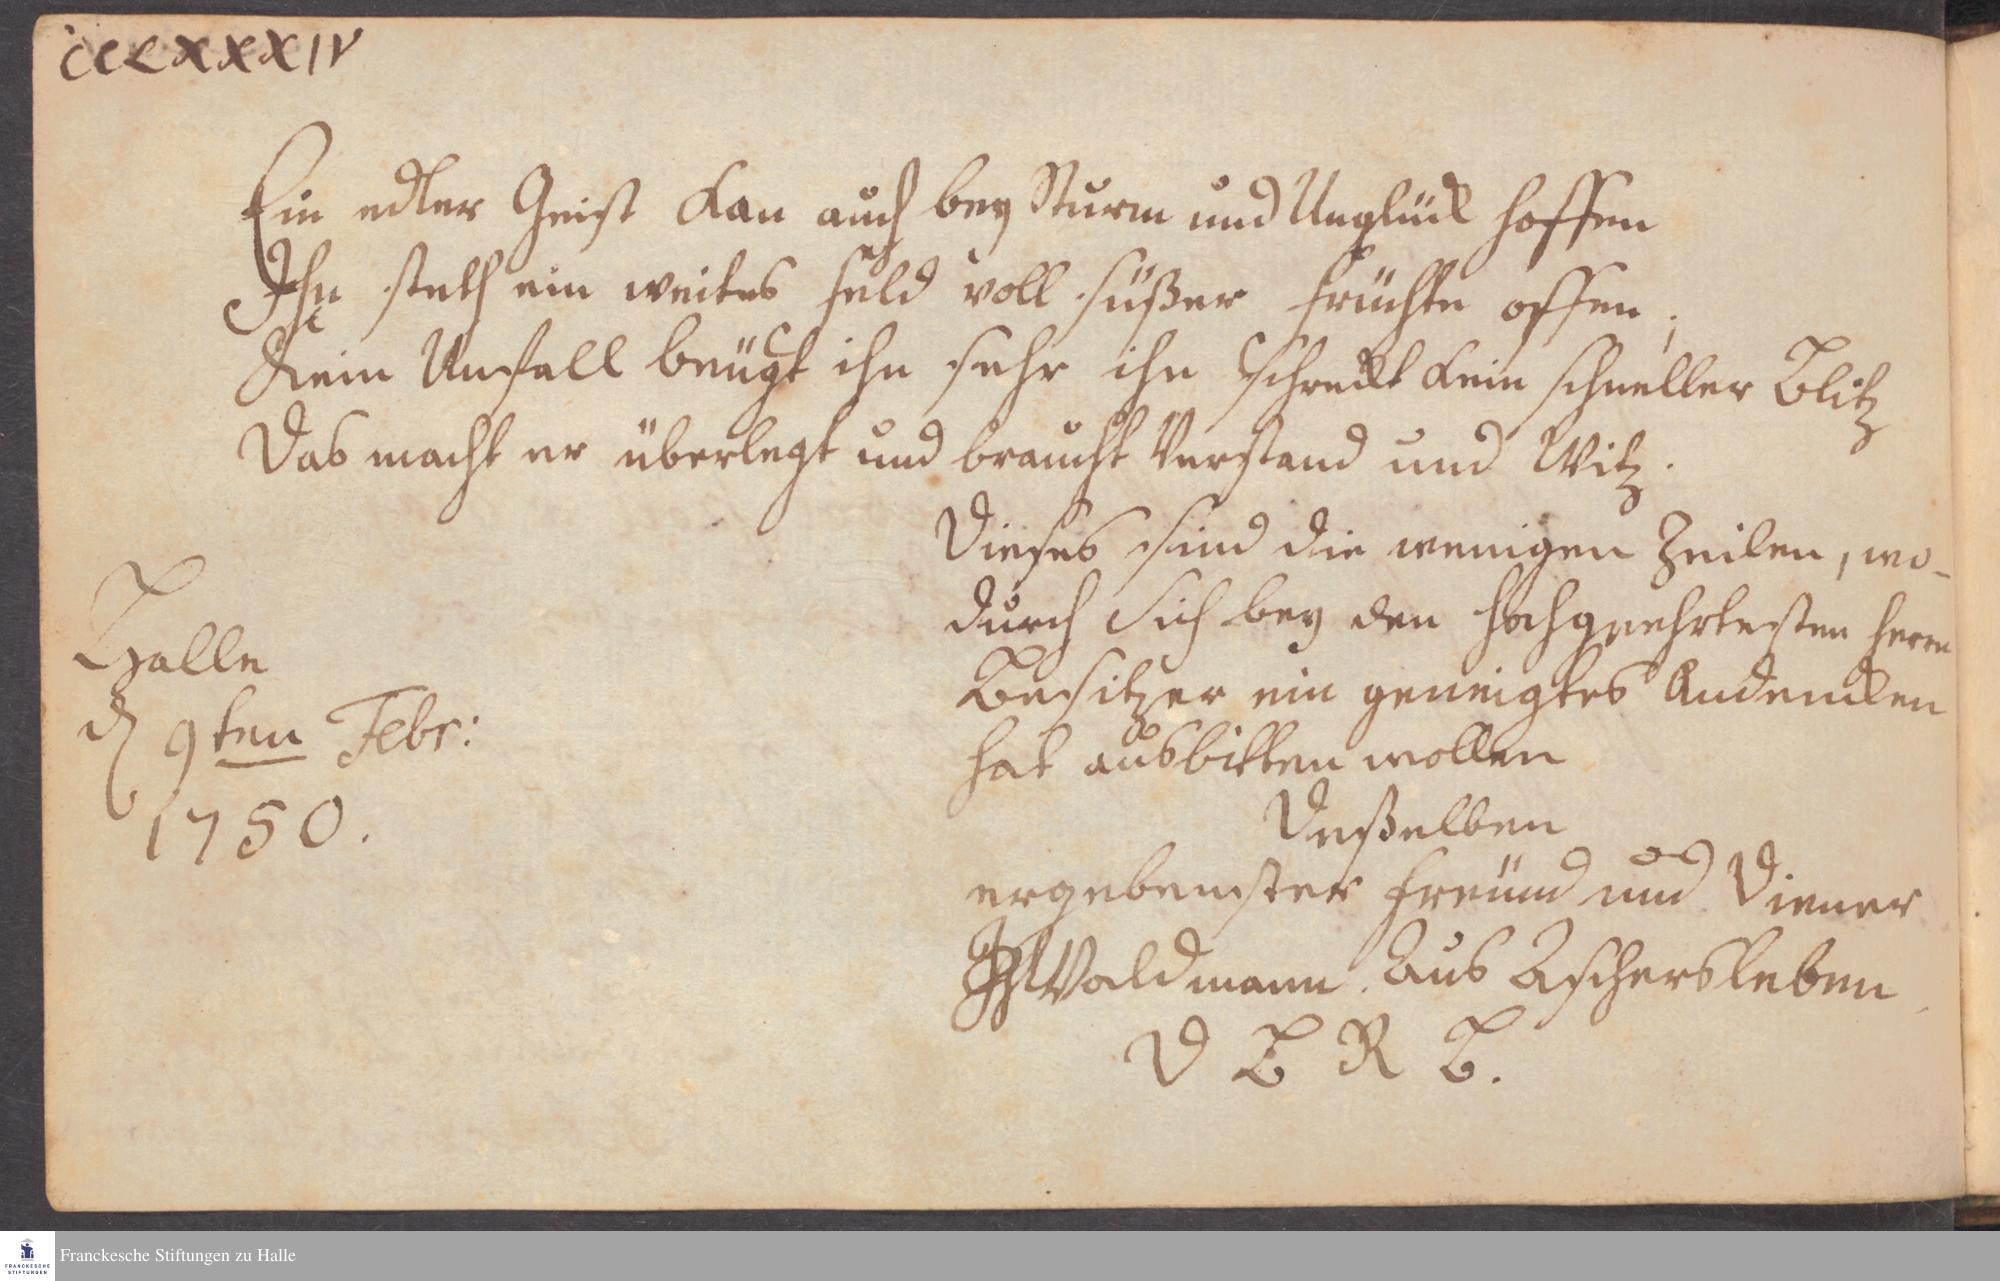 CCCXXXIV
Ein edler Geist kan auch bey Sturm und Unglück hoffen
Ihn steth ein weites Feld voll süßer Früchte offen,
Kein Unfall beügt ihn sehr ihn schreckt kein schneller Blitz
Das macht er überlegt und braucht Verstand und Witz.
Dieses sind die wenigen Zeilen, wo-
durch sich bey den Hochgeehrtesten Herrn
Besitzer ein geneigtes Andencken
hat ausbitten wollen
Deßelben
ergebenster Freünd und Diener
Waldmann. Aus Aschersleben
D B R B.
Halle
d 9ten Febr:
1750.
Franckesche Stiftungen zu Halle
FRANCKESCHE
STIFTUNGEN